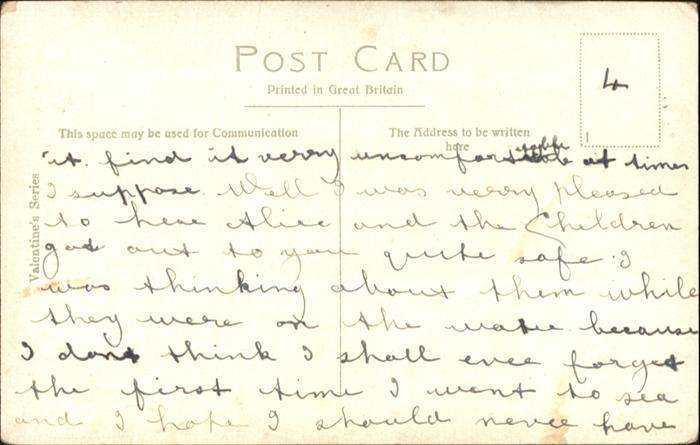 POST CARD
4
Printed in Great Britain
This space may be used for Communication
The Address to be written
here
Valentine's Series
it. find it verry uncomfortable at times
I suppose. Well I was verry pleased
to hear Alice and the Children
got out to you quite safe. I
was thinking about them while
they were on the water because
I dont think I shall ever forget
the first time I went to sea
and I hope I should never have